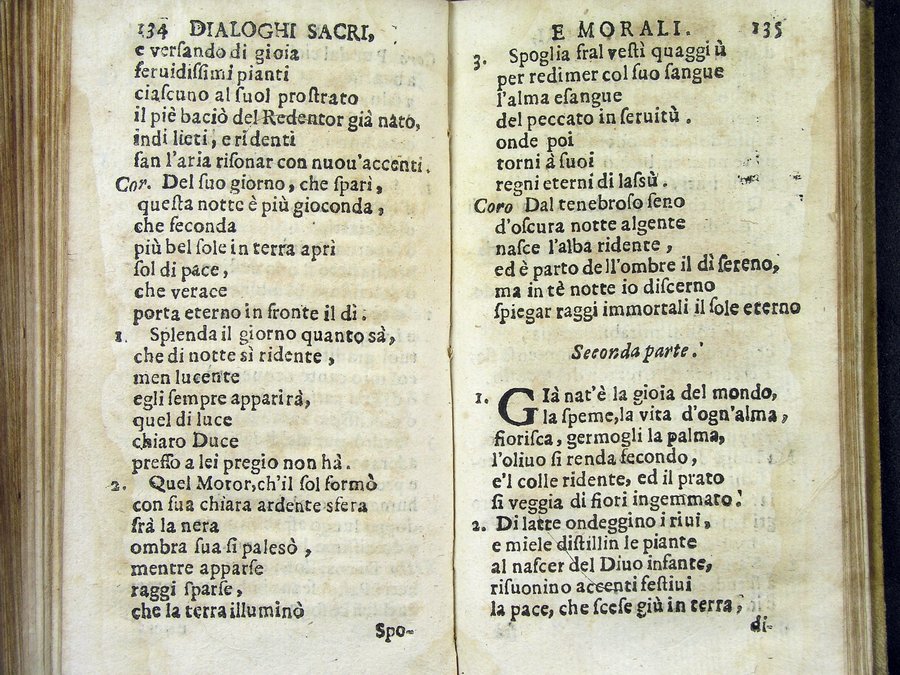 134 DIALOGHI SACRI,
e verſando di gioia
feruidiſſimi pianti
ciaſcuno al ſuol proſtrato
il piè baciò del Redentor già nato,
indi lieti, e ridenti
fan l'aria riſonar con nuou'accenti.
Cor. Del ſuo giorno, che ſparì,
queſta notte è più gioconda,
che feconda
più bel ſole in terra aprì
ſol di pace,
che verace
porta eterno in fronte il dì.
1. Splenda il giorno quanto sà,
che di notte sì ridente,
men lucente
egli ſempre apparirà,
quel di luce
chiaro Duce
preſſo a lei pregio non hà.
2. Quel Motor, ch'il ſol formò
con ſua chiara ardente sfera
frà la nera
ombra ſua ſi palesò,
mentre apparſe
raggi ſparſe,
che la terra illuminò
Spo-
E MORALI. 135
3. Spoglia fral veſtì quaggiù
per redimer col ſuo ſangue
l'alma eſangue
del peccato in ſeruitù.
onde poi
torni à ſuoi
regni eterni di laſsù.
Coro Dal tenebroſo ſeno
d'oſcura notte algente
naſce l'alba ridente,
ed è parto dell'ombre il dì ſereno,
ma in tè notte io diſcerno
ſpiegar raggi immortali il ſole eterno
Seconda parte.
1. GIà nat'è la gioia del mondo,
la ſpeme, la vita d'ogn'alma,
fioriſca, germogli la palma,
l'oliuo ſi renda fecondo,
e'l colle ridente, ed il prato
ſi veggia di fiori ingemmato.
2. Di latte ondeggino i riui,
e miele diſtillin le piante
al naſcer del Diuo infante,
riſuonino accenti feſtiui
la pace, che ſceſe giù in terra,
di-